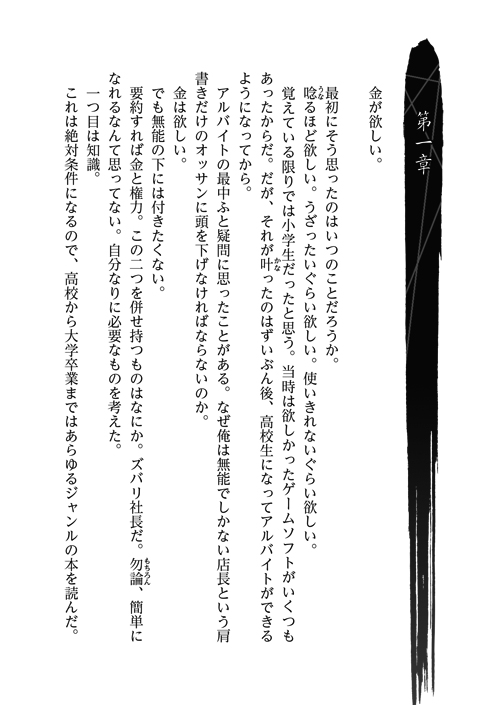 第一章
金が欲しい。
最初にそう思ったのはいつのことだろうか。
唸るほど欲しい。うざったいぐらい欲しい。使いきれないぐらい欲しい。
覚えている限りでは小学生だったと思う。当時は欲しかったゲームソフトがいくつも
あったからだ。だが、それが叶ったのはずいぶん後、高校生になってアルバイトができる
ようになってから。
アルバイトの最中ふと疑問に思ったことがある。なぜ俺は無能でしかない店長という肩
書きだけのオッサンに頭を下げなければならないのか。
金は欲しい。
でも無能の下には付きたくない。
要約すれば金と権力。この二つを併せ持つものはなにか。ズバリ社長だ。勿論、簡単に
なれるなんて思ってない。自分なりに必要なものを考えた。
一つ目は知識。
これは絶対条件になるので、高校から大学卒業まではあらゆるジャンルの本を読んだ。